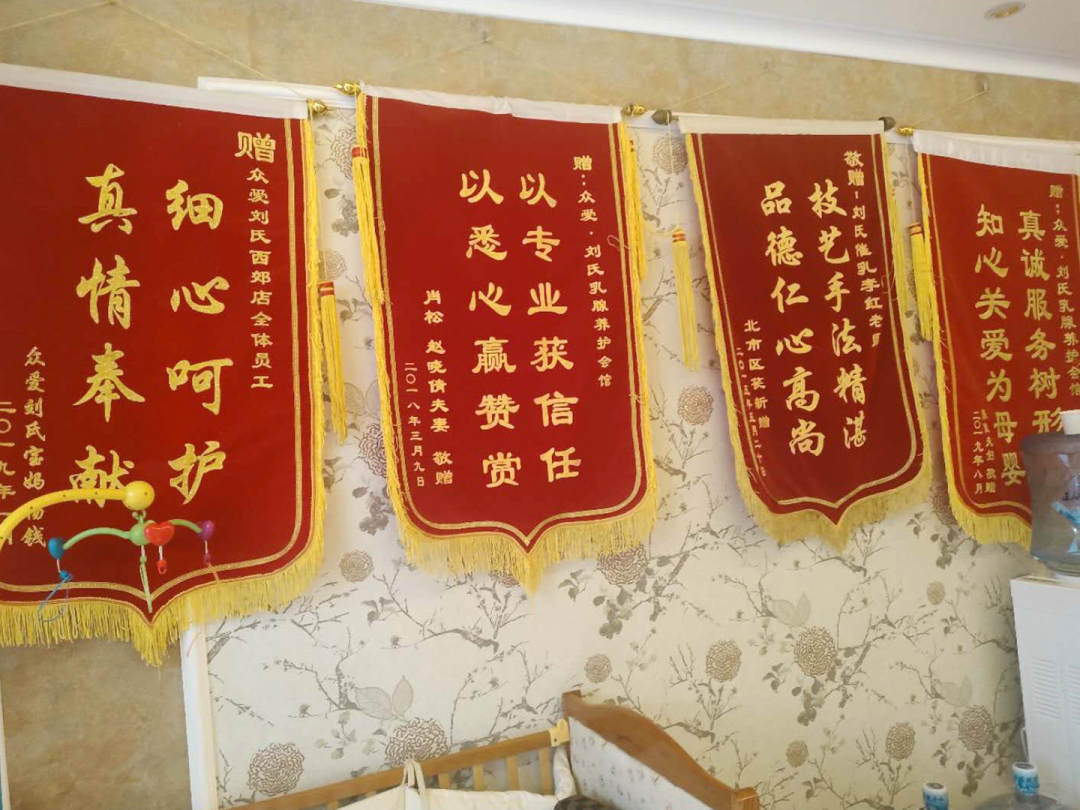 赠众爱刘氏西郊店全体员工
细心呵护
真情奉献
众爱刘氏宝妈
二〇一九年
赠：众爱·刘氏乳腺养护会馆
以专业获信任
以悉心赢赞赏
肖松 赵晓倩夫妻 敬赠
二〇一八年三月九日
敬赠：刘氏催乳李红老师
技艺手法精湛
品德仁心高尚
赠：众爱·刘氏乳腺养护会馆
真诚服务树形
知心关爱为母婴
敬赠
二〇一九年八月